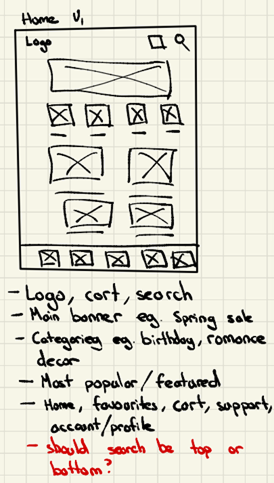 Home V1
Logo
- Logo, cart, search
- Main banner eg. Spring sale
- Categories eg. birthday, romance
decor
- Most popular/featured
- Home, favourites, cart, support,
account/profile
- should search be top or
bottom?